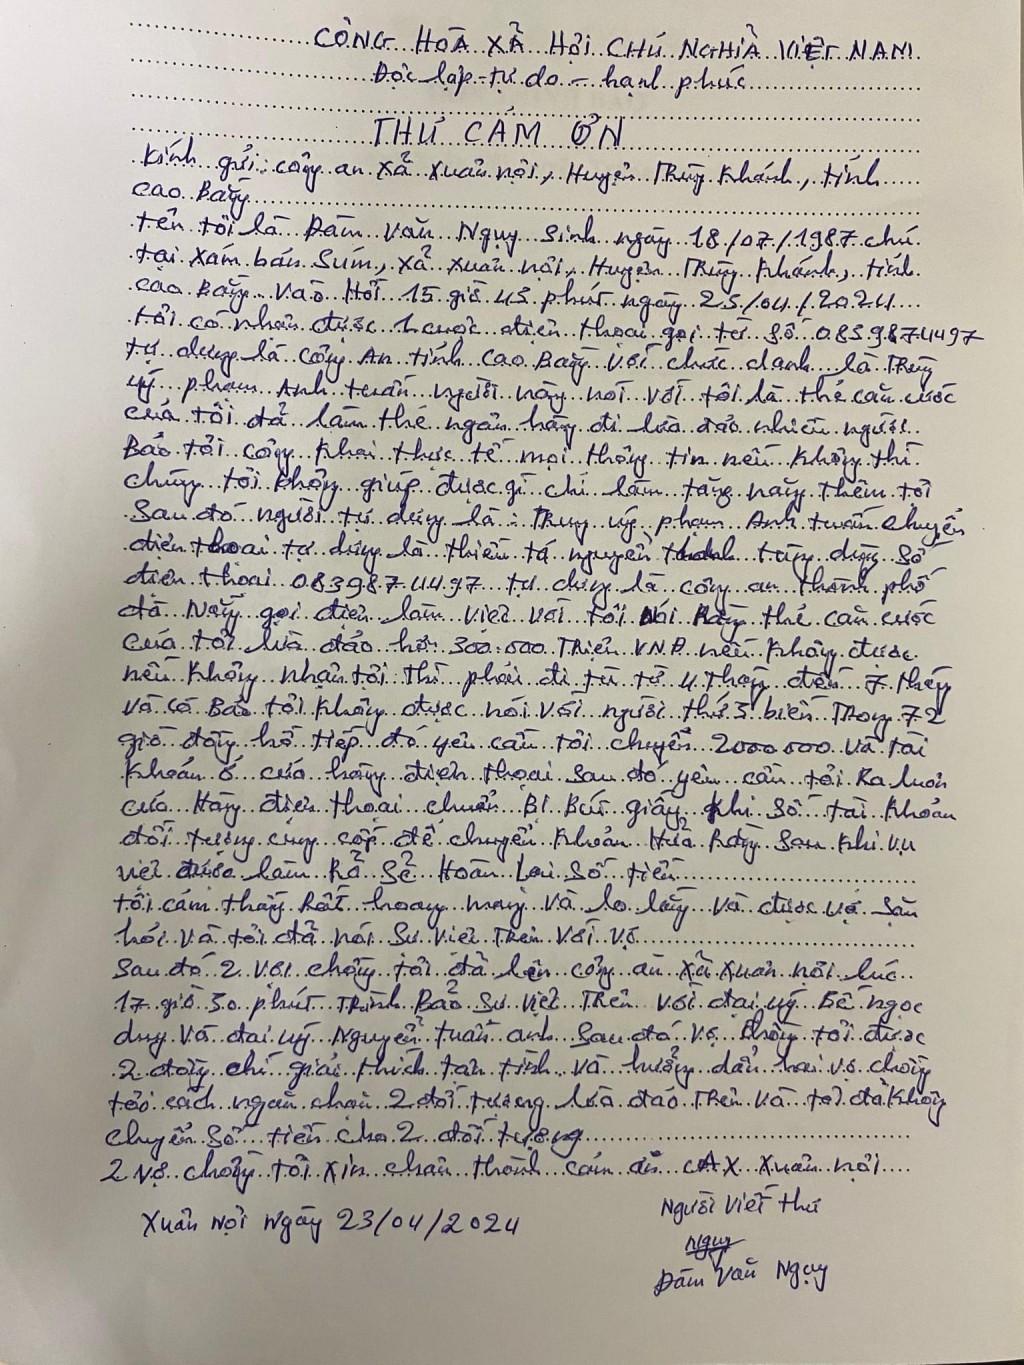 CỘNG HOÀ XÃ HỘI CHỦ NGHĨA VIỆT NAM
Độc lập - tự do - hạnh phúc
THƯ CẢM ƠN
Kính gửi: công an xã xuân nội, Huyện Trùng Khánh, tỉnh
cao Bằng
tên tôi là Đàm Văn Ngụy sinh ngày 18/07/1987 chú
tại xóm bản Súm, xã xuân nội, Huyện Trùng Khánh, tỉnh
cao Bằng Vào Hồi 15 giờ 45 phút ngày 23/04/2024
tôi có nhận được 1 cuộc điện thoại gọi từ số 0839874497
tự dưng là công An tỉnh cao Bằng với chức danh là Trung
úy phạm Anh tuấn người này nói với tôi là thẻ căn cước
của tôi đã làm thẻ ngân hàng đi lừa đảo nhiều người
Bảo tôi công khai thực tế mọi thông tin nếu không thì
chúng tôi không giúp được gì chỉ làm tăng nặng thêm tội
Sau đó người tự dưng là: Trung úy phạm Anh tuấn chuyển
điện thoại tự dưng là thiếu tá nguyễn thanh tùng dùng số
điện thoại 0839874497 tự dưng là công an thành phố
đà Nẵng gọi điện làm việc với tôi nói Rằng thẻ căn cước
của tôi lừa đảo hơn 300.000 Triệu VNĐ nếu không được
nếu không nhận tội thì phải đi tù từ 4 tháng đến 7 tháng
và có Bảo tôi không được nói với người thứ 3 biết Trong 72
giờ đồng hồ tiếp đó yêu cầu tôi chuyển 2000000 và tài
khoản ở cửa hàng điện thoại sau đó yêu cầu tôi Ra luôn
cửa Hàng điện thoại chuẩn Bị Bút giấy ghi số tài khoản
đối tượng cung cấp để chuyển khoản Hứa Rằng sau khi vụ
việc được làm Rõ Sẽ Hoàn Lại số tiền
tôi cảm thấy Rất hoang mang và lo lắng và được vợ
hỏi và tôi đã nói sự việc Trên với vợ
Sau đó 2 vợ chồng tôi đã lên công an xã xuân nội lúc
17 giờ 30 phút Trình Báo sự việc Trên với đại úy Bế ngọc
duy và đại úy Nguyễn tuấn anh sau đó vợ chồng tôi được
2 đồng chí giải thích tận tình và hướng dẫn hai vợ chồng
tôi cách ngăn chặn 2 đối tượng lừa đảo Trên và tôi đã không
chuyển số tiền cho 2 đối tượng
2 vợ chồng tôi xin chân thành cảm ơn CAX xuân nội
Người viết thư
Xuân Nội Ngày 23/04/2024
Ngụy
Đàm Văn Ngụy